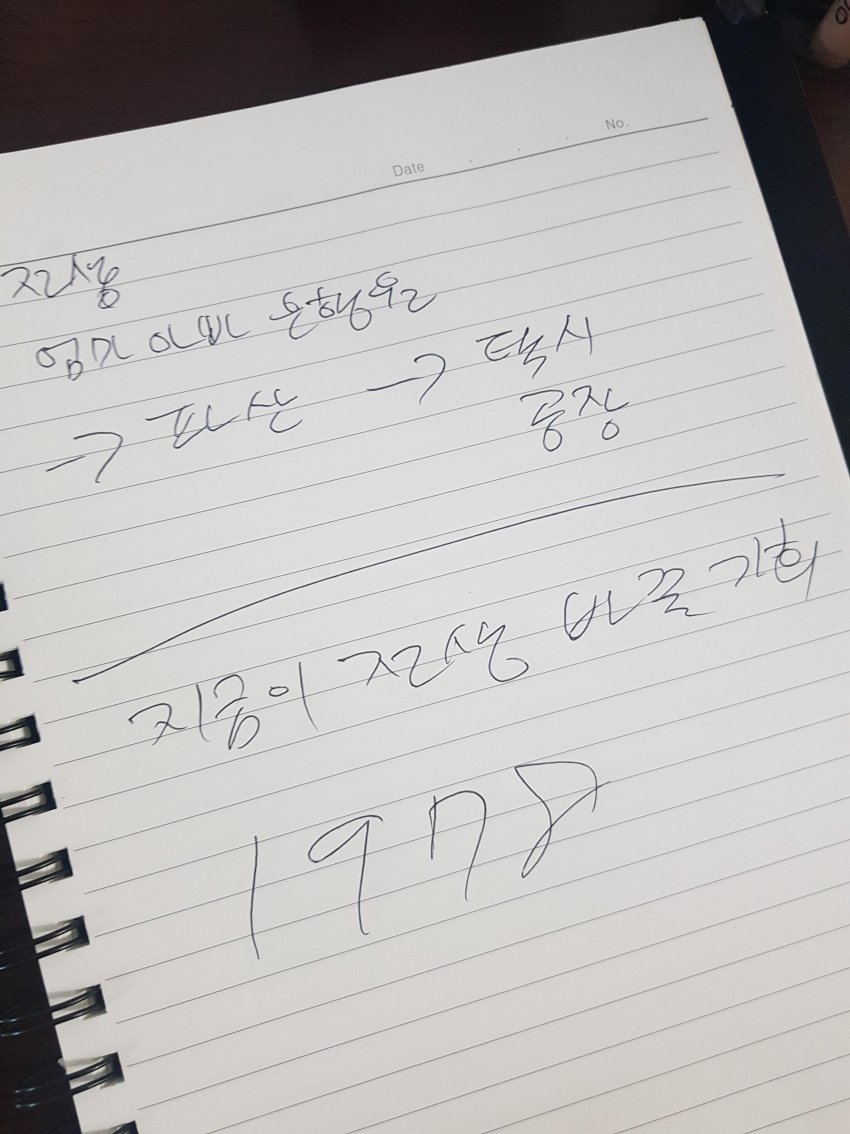 No.
Date
전생
엄마 아빠 은행원
→ 파산 → 택시
공장
지금이 전생 바꿀 기회
1978